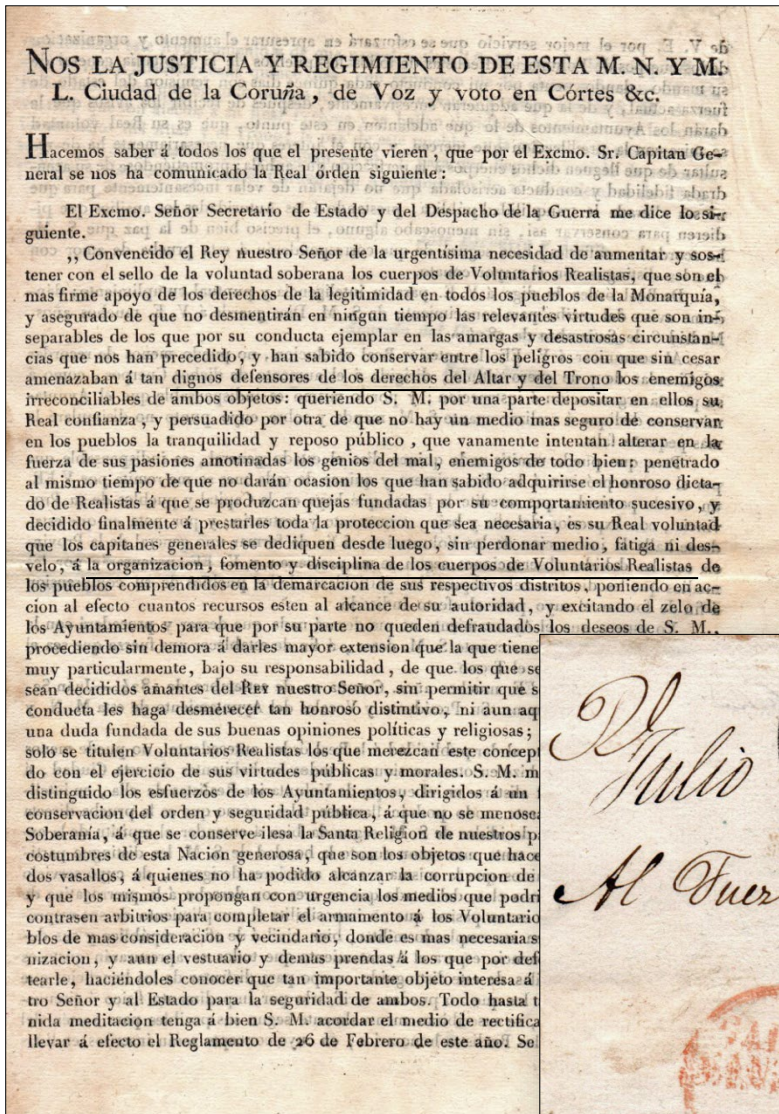 NOS LA JUSTICIA Y REGIMIENTO DE ESTA M. N. Y M.
L. Ciudad de la Coruña, de Voz y voto en Córtes &c.
Hacemos saber á todos los que el presente vieren, que por el Excmo. Sr. Capitan Ge-
neral se nos ha comunicado la Real órden siguiente:
El Excmo. Señor Secretario de Estado y del Despacho de la Guerra me dice lo si-
guiente.
,, Convencido el Rey nuestro Señor de la urgentísima necesidad de aumentar y sos-
tener con el sello de la voluntad soberana los cuerpos de Voluntarios Realistas, que son el
mas firme apoyo de los derechos de la legitimidad en todos los pueblos de la Monarquía,
y asegurado de que no desmentirán en ningun tiempo las relevantes virtudes que son in-
separables de los que por su conducta ejemplar en las amargas y desastrosas circunstan-
cias que nos han precedido, y han sabido conservar entre los peligros con que sin cesar
amenazaban á tan dignos defensores de los derechos del Altar y del Trono los enemigos
irreconciliables de ambos objetos: queriendo S. M. por una parte depositar en ellos su
Real confianza, y persuadido por otra de que no hay un medio mas seguro de conservar
en los pueblos la tranquilidad y reposo público, que vanamente intentan alterar en la
fuerza de sus pasiones amotinadas los genios del mal, enemigos de todo bien; penetrado
al mismo tiempo de que no darán ocasion los que han sabido adquirirse el honroso dicta-
do de Realistas á que se produzcan quejas fundadas por su comportamiento sucesivo, y
decidido finalmente á prestarles toda la proteccion que sea necesaria, es su Real voluntad
que los capitanes generales se dediquen desde luego, sin perdonar medio, fatiga ni des-
velo, á la organizacion, fomento y disciplina de los cuerpos de Voluntarios Realistas de
los pueblos comprendidos en la demarcacion de sus respectivos distritos, poniendo en ac-
cion al efecto cuantos recursos esten al alcance de su autoridad, y excitando el zelo de
los Ayuntamientos para que por su parte no queden defraudados los deseos de S. M.,
procediendo sin demora á darles mayor extension que la que tiene
muy particularmente, bajo su responsabilidad, de que los que se
sean decididos amantes del REY nuestro Señor, sin permitir que s
conducta les haga desmerecer tan honroso distintivo, ni aun aq
una duda fundada de sus buenas opiniones políticas y religiosas;
solo se titulen Voluntarios Realistas los que merezcan este concept
do con el ejercicio de sus virtudes públicas y morales. S. M. m
distinguido los esfuerzos de los Ayuntamientos, dirigidos á un
conservacion del orden y seguridad pública, á que no se menosc
Soberanía, á que se conserve ilesa la Santa Religion de nuestros p
costumbres de esta Nacion generosa, que son los objetos que hace
dos vasallos, á quienes no ha podido alcanzar la corrupcion de
y que los mismos propongan con urgencia los medios que podri
contrasen arbitrios para completar el armamento á los Voluntario
blos de mas consideracion y vecindario, donde es mas necesaria s
nizacion, y aun el vestuario y demas prendas á los que por def
tearle, haciéndoles conocer que tan importante objeto interesa á
tro Señor y al Estado para la seguridad de ambos. Todo hasta t
nida meditacion tenga á bien S. M. acordar el medio de rectifica
llevar á efecto el Reglamento de 26 de Febrero de este año. Se
Julio
Al Fuer